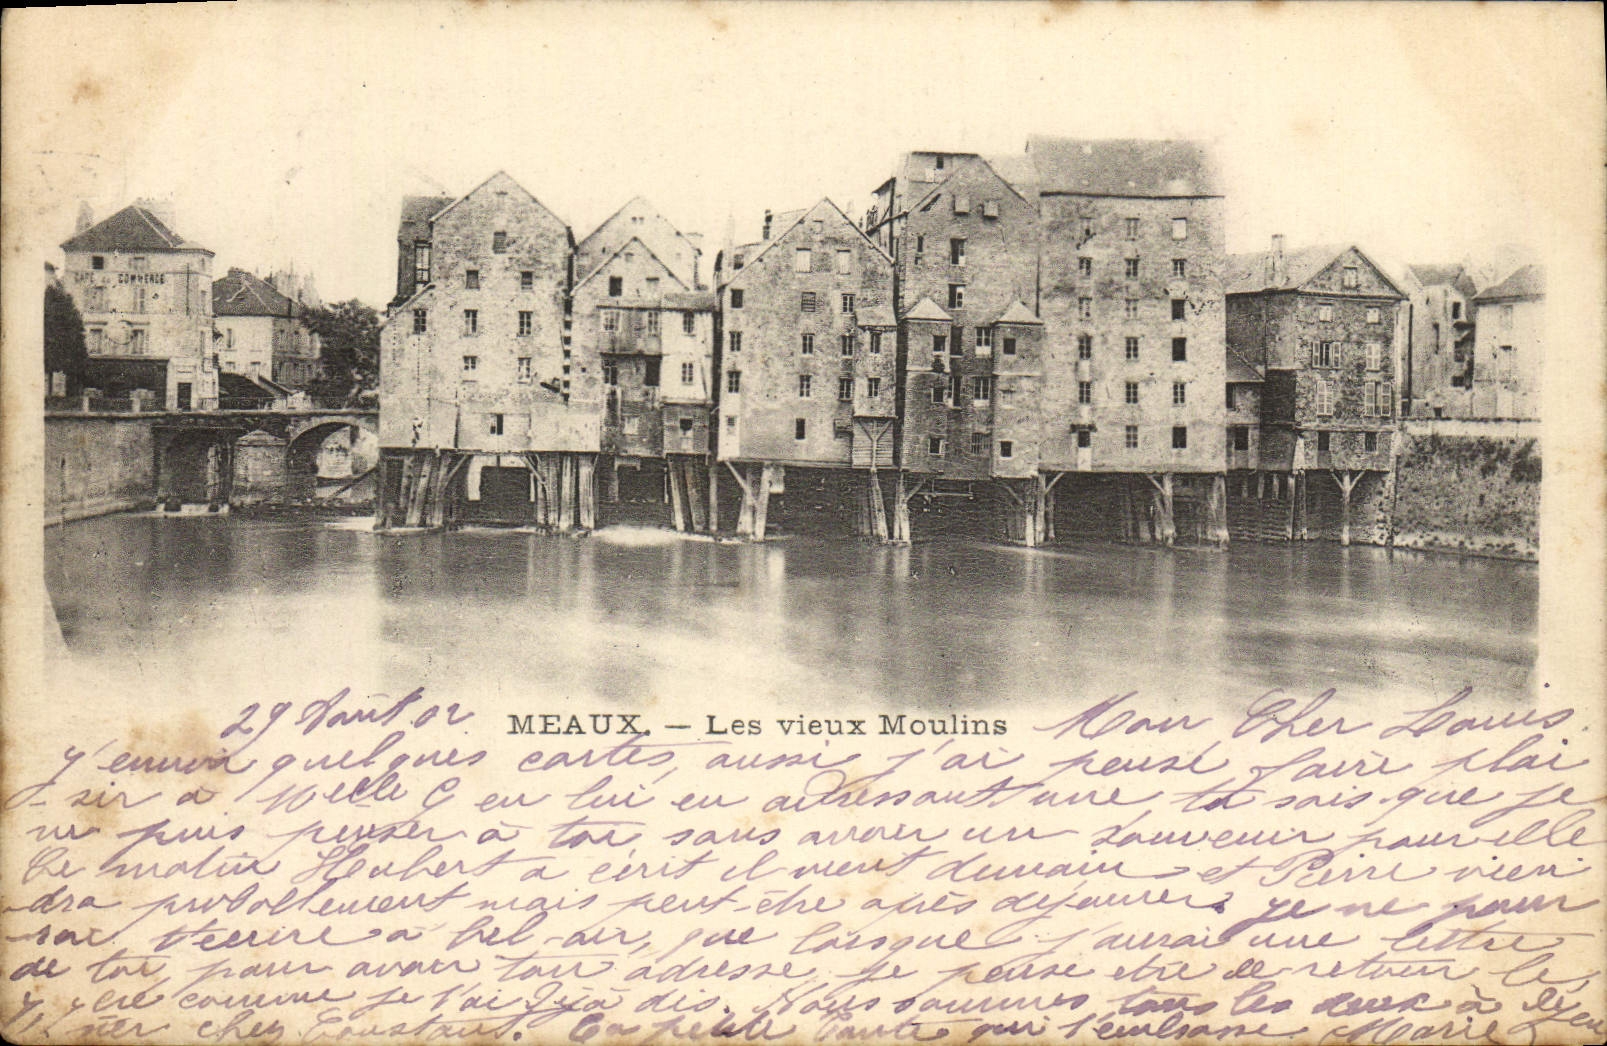 CAFÉ du COMMERCE
29 Août 02
MEAUX. — Les vieux Moulins
Mon Cher Louis
j'envoie quelques cartes, aussi j'ai pensé faire plai
-sir à Melle G en lui en adressant une, tu sais que je
ne puis penser à toi, sans avoir un souvenir pour elle
Ce matin Hubert a écrit il vient demain et Pierre vien
-dra probablement mais peut-être après déjeuner. je ne pour
-rai t'écrire à bel-air, que lorsque j'aurai une lettre
de toi, pour avoir ton adresse, je pense être de retour le
comme je t'ai déjà dis. Nous sommes tous les deux à déjeu
ner chez Constant. Ta petite Tante qui t'embrasse. Marie